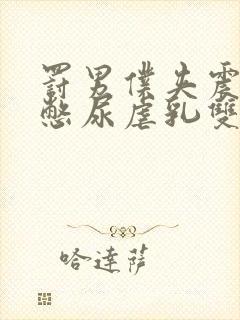 罰男僕失震
憋尿虐乳雙
哈達薩